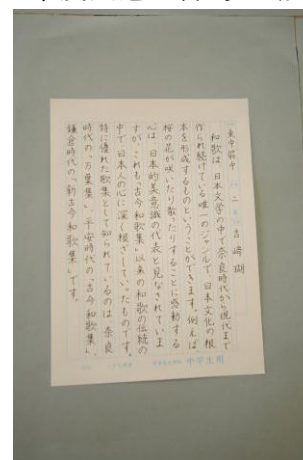 東中筋中 二 吉﨑 瑚
和歌は、日本文学の中で奈良時代から現代まで
作られ続けている唯一のジャンルで、日本文化の根
本を形成するものということができます。例えば、
桜の花が咲いたり散ったりすることに感動する
心は、日本的美意識の代表と見なされていま
すが、これも「古今和歌集」以来の和歌の伝統の
中で、日本人の心に深く根ざしていったものです。
特に優れた歌集として知られているのは、奈良
時代の「万葉集」、平安時代の「古今和歌集」、
鎌倉時代の「新古今和歌集」です。
中学生用